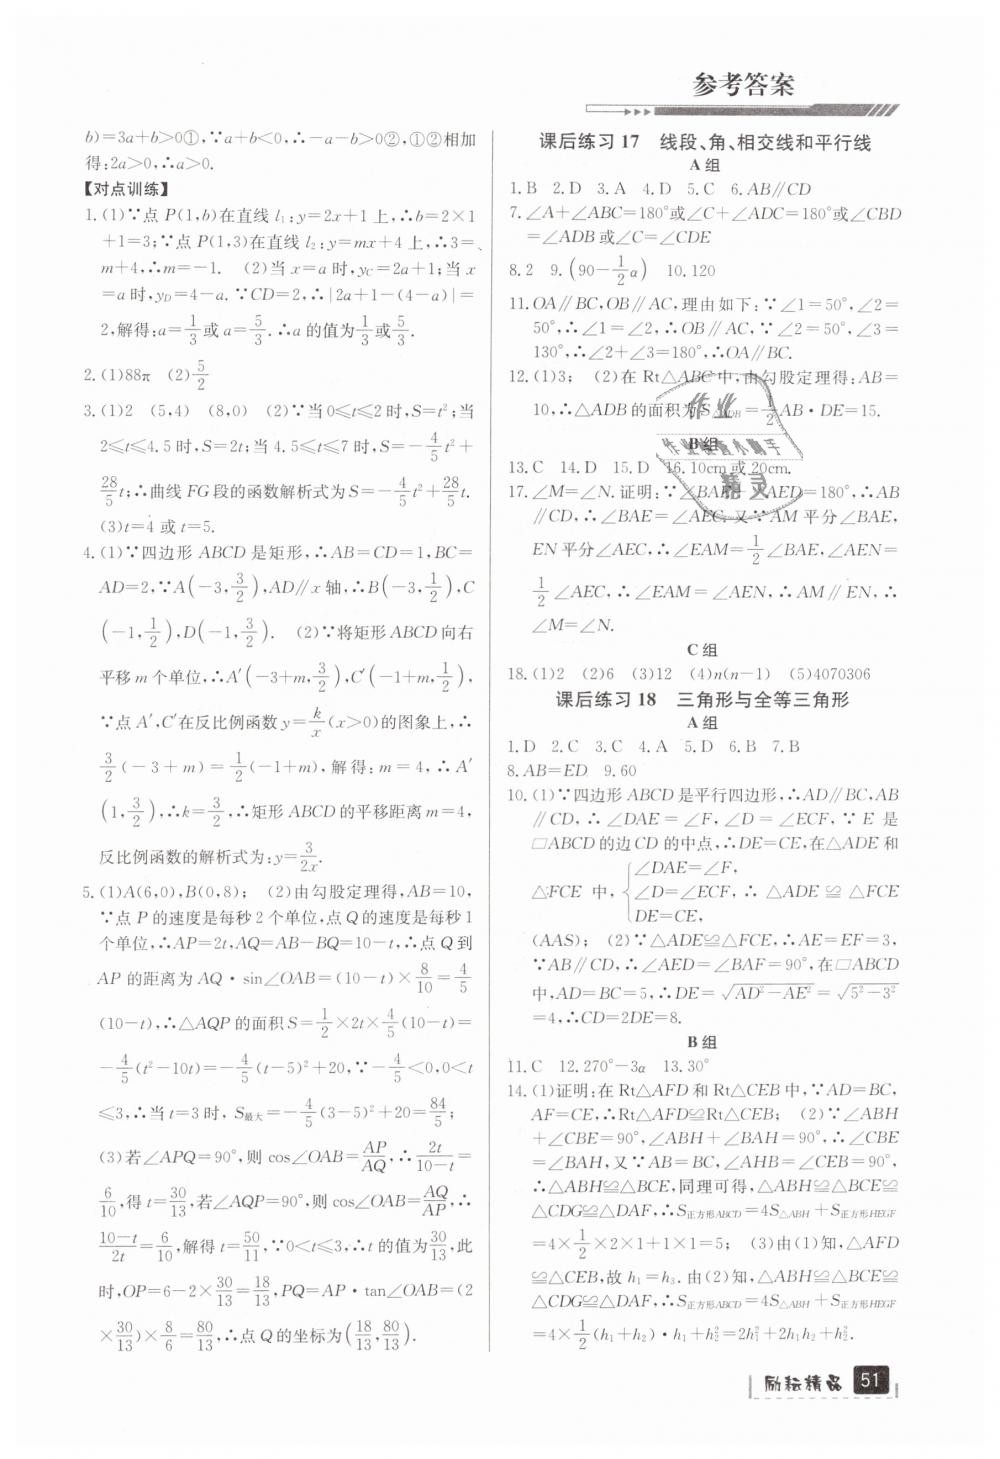 参考答案
b)=3a+b>0①,∵a+b<0,∴-a-b>0②,①②相加
得:2a>0,∴a>0.
【对点训练】
1.(1)∵点 P(1,b)在直线 l₁:y=2x+1 上,∴b=2×1
+1=3;∵点 P(1,3)在直线 l₂:y=mx+4 上,∴3=
m+4,∴m=-1. (2)当 x=a 时,y_C=2a+1;当 x
=a 时,y_D=4-a.∵CD=2,∴|2a+1-(4-a)|=
2,解得:a=1/3或 a=5/3.∴a 的值为1/3或5/3.
2.(1)88π (2)5/2
3.(1)2 (5,4) (8,0) (2)∵当 0≤t≤2 时,S=t²;当
2≤t≤4.5 时,S=2t;当 4.5≤t≤7 时,S=-4/5t²+
28/5t;∴曲线 FG 段的函数解析式为 S=-4/5t²+28/5t.
(3)t=4 或 t=5.
4.(1)∵四边形 ABCD 是矩形,∴AB=CD=1,BC=
AD=2,∵A(-3,3/2),AD∥x 轴,∴B(-3,1/2),C
(-1,1/2),D(-1,3/2). (2)∵将矩形 ABCD 向右
平移 m 个单位,∴A′(-3+m,3/2),C′(-1+m,1/2),
∵点 A′,C′在反比例函数 y=k/x(x>0)的图象上,∴
3/2(-3+m)=1/2(-1+m),解得:m=4,∴A′
(1,3/2),∴k=3/2,∴矩形 ABCD 的平移距离 m=4,
反比例函数的解析式为:y=3/2x.
5.(1)A(6,0),B(0,8); (2)由勾股定理得,AB=10,
∵点 P 的速度是每秒 2 个单位,点 Q 的速度是每秒 1
个单位,∴AP=2t,AQ=AB-BQ=10-t,∴点 Q 到
AP 的距离为 AQ·sin∠OAB=(10-t)×8/10=4/5
(10-t),∴△AQP 的面积 S=1/2×2t×4/5(10-t)=
-4/5(t²-10t)=-4/5(t-5)²+20,∵-4/5<0,0<t
≤3,∴当 t=3 时, S最大=-4/5(3-5)²+20=84/5;
(3)若∠APQ=90°,则 cos∠OAB=AP/AQ,∴2t/10-t=
6/10,得 t=30/13,若∠AQP=90°,则 cos∠OAB=AQ/AP,∴
10-t/2t=6/10,解得 t=50/11,∵0<t≤3,∴t 的值为30/13,此
时,OP=6-2×30/13=18/13,PQ=AP·tan∠OAB=(2
×30/13)×8/6=80/13,∴点 Q 的坐标为(18/13,80/13).
课后练习 17 线段、角、相交线和平行线
A 组
1.B 2.D 3.A 4.D 5.C 6.AB∥CD
7.∠A+∠ABC=180°或∠C+∠ADC=180°或∠CBD
=∠ADB 或∠C=∠CDE
8.2 9.(90-1/2α) 10.120
11.OA∥BC,OB∥AC,理由如下:∵∠1=50°,∠2=
50°,∴∠1=∠2,∴OB∥AC,∵∠2=50°,∠3=
130°,∴∠2+∠3=180°,∴OA∥BC.
12.(1)3; (2)在 Rt△ABC 中,由勾股定理得:AB=
10,∴△ADB 的面积为 S△ADB=1/2AB·DE=15.
B 组
13.C 14.D 15.D 16.10cm 或 20cm.
17.∠M=∠N.证明:∵∠BAE+∠AED=180°,∴AB
∥CD,∴∠BAE=∠AEC,又∵AM 平分∠BAE,
EN 平分∠AEC,∴∠EAM=1/2∠BAE,∠AEN=
1/2∠AEC,∴∠EAM=∠AEN,∴AM∥EN,∴
∠M=∠N.
C 组
18.(1)2 (2)6 (3)12 (4)n(n-1) (5)4070306
课后练习 18 三角形与全等三角形
A 组
1.D 2.C 3.C 4.A 5.D 6.B 7.B
8.AB=ED 9.60
10.(1)∵四边形 ABCD 是平行四边形,∴AD∥BC,AB
∥CD,∴∠DAE=∠F,∠D=∠ECF,∵E 是
□ABCD 的边 CD 的中点,∴DE=CE,在△ADE 和
∠DAE=∠F,
△FCE 中,{∠D=∠ECF,∴△ADE≌△FCE
DE=CE,
(AAS); (2)∵△ADE≌△FCE,∴AE=EF=3,
∵AB∥CD,∴∠AED=∠BAF=90°,在□ABCD
中,AD=BC=5,∴DE=√(AD²-AE²)=√(5²-3²)
=4,∴CD=2DE=8.
B 组
11.C 12.270°-3α 13.30°
14.(1)证明:在 Rt△AFD 和 Rt△CEB 中,∵AD=BC,
AF=CE,∴Rt△AFD≌Rt△CEB; (2)∵∠ABH
+∠CBE=90°,∠ABH+∠BAH=90°,∴∠CBE
=∠BAH,又∵AB=BC,∠AHB=∠CEB=90°,
∴△ABH≌△BCE,同理可得,△ABH≌△BCE≌
△CDG≌△DAF,∴S正方形ABCD=4S△ABH+S正方形HEGF
=4×1/2×2×1+1×1=5; (3)由(1)知,△AFD
≌△CEB,故 h₁=h₃.由(2)知,△ABH≌△BCE≌
△CDG≌△DAF,∴S正方形ABCD=4S△ABH+S正方形HEGF
=4×1/2(h₁+h₂)·h₁+h₂²=2h₁²+2h₁h₂+h₂².
作业
作业检查小助手
精灵
励耘精品 51